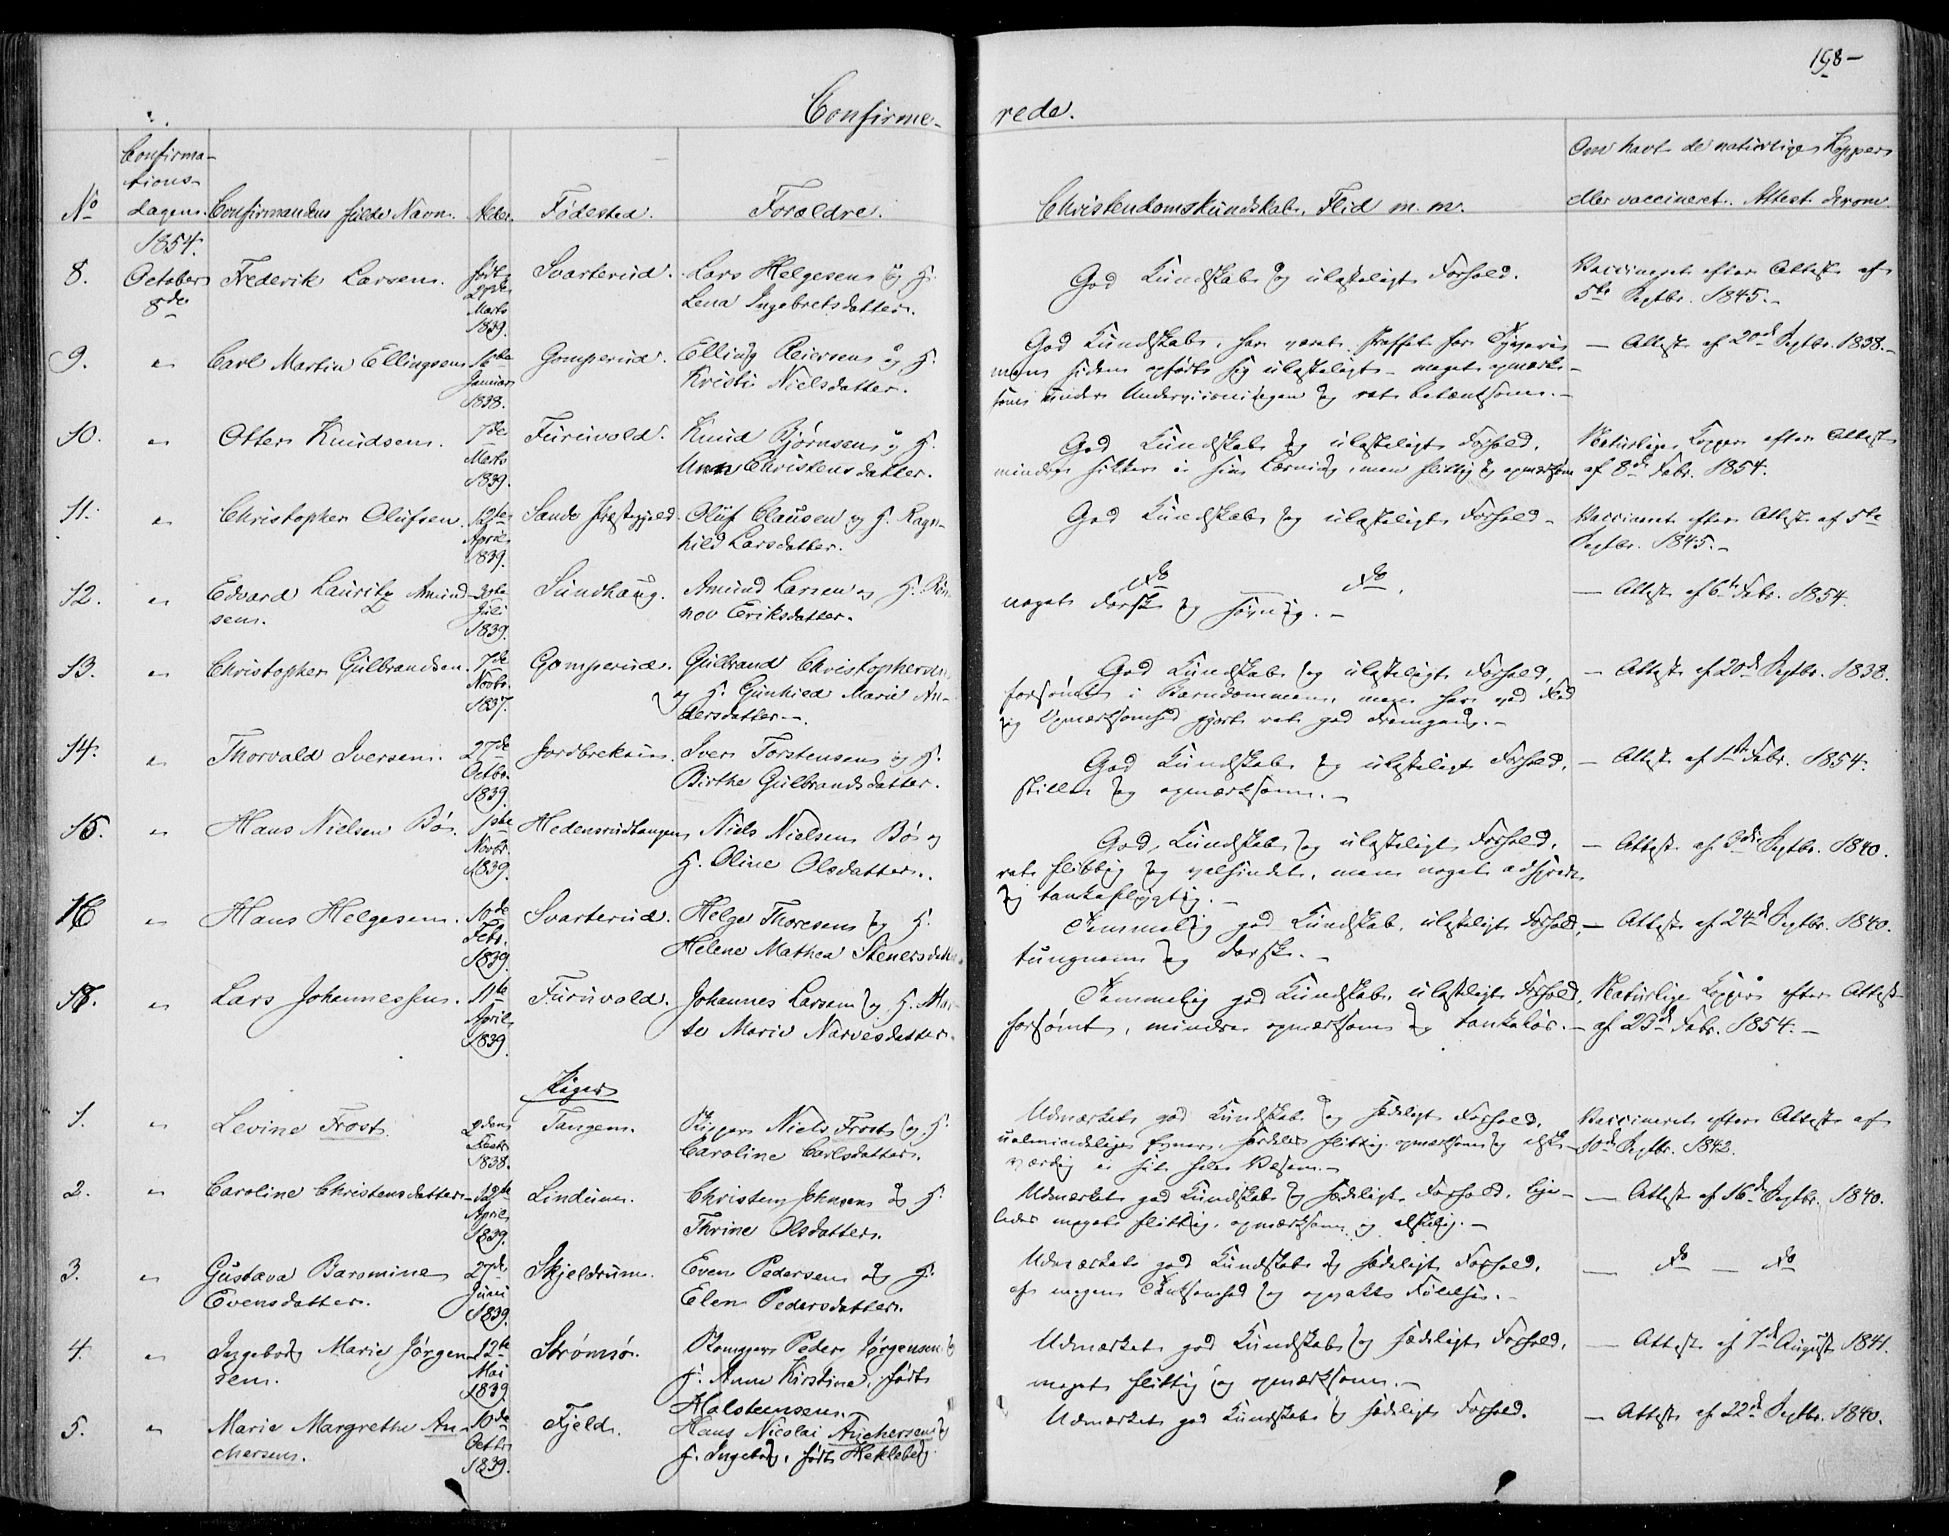 198-
Confirme-
rede.
No
Confirma-
tions-
dagen.
Confirmandens fulde Navn.
Alder.
Fødested.
Forældre.
Christendomskundskab, Flid m. m.
Om havt de naturlige Kopper
eller vaccineret. Attest derom.
1854.
8.
October
8de
Frederik Larsen.
født
27de
Marts
1839.
Svarterud.
Lars Helgesen og H.
Lena Ingebretsdatter.
God Kundskab og ulasteligt Forhold.
Vaccineret efter Attest af
5te Septbr. 1845.-
9.
"
Carl Martin Ellingsen
16de
Januar
1838.
Gomperud.
Elling Reiersen og H.
Kristi Nielsdatter.
God Kundskab, har været straffet for Tyveri
men siden opført sig ulasteligt - meget opmærk-
som under Underviisningen og ret betænksom.-
- Attest af 20de Septbr. 1838.-
10.
"
Otter Knudsen.
7de
Marts
1839.
Furuvald.
Knud Bjørnsen og H.
Unn Christensdatter.
God Kundskab og ulasteligt Forhold,
mindre sikker i sin Lærdom, men flittig og opmærksom
Naturlige Kopper efter Attest
af 8de Febr. 1854.
11.
"
Christopher Olufsen.
12te
April
1839.
Sande Præstegjeld.
Oluf Clausen og H. Ragn-
hild Larsdatter.
God Kundskab og ulasteligt Forhold-
Vaccineret efter Attest af 5te
Septbr. 1845.-
12.
"
Edvard Lauritz Amund-
sen.
30te
Juli
1839.
Sundhaug.
Amund Larsen og H. Røn-
nov Eriksdatter.
do do.
noget dorsk og søvnig.-
- Attest af 6te Febr. 1854.
13.
"
Christopher Gulbrandsen.
7de
Novbr.
1837.
Gomperud.
Gulbrand Christophersen
og H. Gunhild Marie An-
dersdatter.-
God Kundskab og ulasteligt Forhold,
forsømt i Barndommen, men har ved Flid
og Opmærksomhed gjort ret god Fremgang.-
- Attest af 20de Septbr. 1838.
14.
"
Thorvald Iversen.
27de
Octbr.
1839.
Jordbrekken.
Iver Torstensen og H.
Birthe Gulbrandsdatter.
God Kundskab og ulasteligt Forhold,
stille og opmærksom.-
- Attest af 1ste Febr. 1854.
15.
"
Hans Nielsen Bø.
1ste
Novbr.
1839.
Hedensrudtangen
Niels Nielsen Bø og
H. Oline Olsdatter.
God Kundskab og ulasteligt Forhold,
ret flittig og velsindet, men noget adspredt
og tankeflygtig.-
- Attest af 3die Septbr. 1840.
16
"
Hans Helgesen.
10de
Febr.
1839.
Svarterud.
Helge Thoresen og H.
Helene Mathea Stenersdatter.
Temmelig god Kundskab, ulasteligt Forhold,
tungnem og dorsk.-
- Attest af 24de Septbr. 1840.
17.
"
Lars Johannessen.
11te
April
1839.
Furuvald.
Johannes Larsen og H. Mar-
te Marie Narvesdatter.
Temmelig god Kundskab, ulasteligt Forhold,
forsømt, mindre opmærksom og tankeløs.-
Naturlige Kopper efter Attest
af 23de Febr. 1854.-
Piger
1.
"
Levine Frost.
1838.
Tangen.
Niels Frost og H.
Caroline Carlsdatter.
Udmærket god Kundskab og sædeligt Forhold,
ualmindelige Evner, særdeles flittig, opmærksom og elsk-
værdig i sit hele Væsen.-
Vaccineret efter Attest af
10de Septbr. 1842.
2.
"
Caroline Christensdatter
12te
April
1839.
Lindum.
Christen Johnsen og H.
Thrine Olsdatter.
Udmærket god Kundskab og sædeligt Forhold, lige-
ledes meget flittig, opmærksom og elskelig.-
- Attest af 16de Septbr. 1840.
3.
"
Gustava Baromine
Evensdatter.
27de
Juni
1839.
Skjeldrum.
Even Pedersen og H.
Elen Pedersdatter.
Udmærket god Kundskab og sædeligt Forhold,
af megen Tænksomhed og opvakt Følelse.-
- do - do
4.
"
Ingeborg Marie Jørgen-
sen.
12te
Mai
1839.
Strømsø.
Peder Jørgensen og
H. Anne Kirstine, født
Holstensen.
Udmærket god Kundskab og sædeligt Forhold,
meget flittig og opmærksom.-
- Attest af 7de August 1841.
5.
"
Marie Margrethe An-
chersen.
10de
Octbr.
1839.
Fjeld.
Hans Nicolai Anchersen og
H. Ingeborg, født Hekleberg.
Udmærket god Kundskab og sædeligt Forhold.
- Attest af 22de Septbr. 1840.